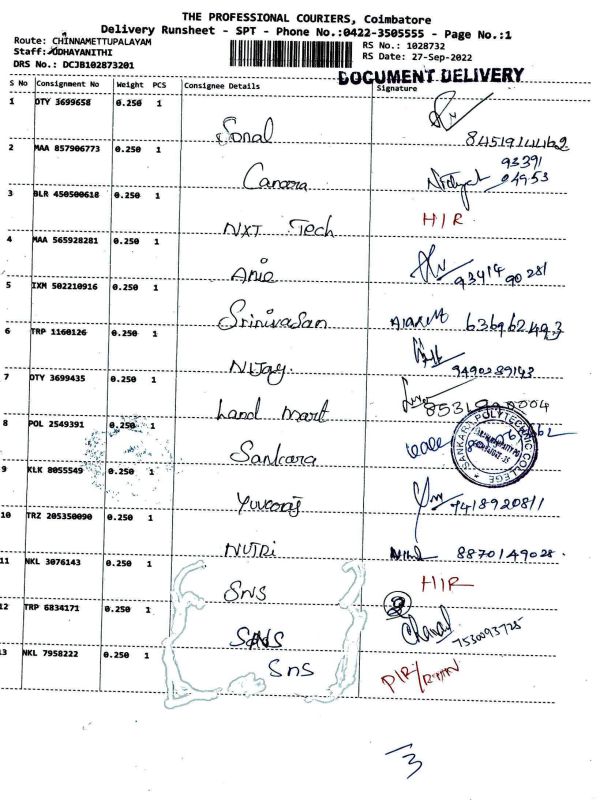 THE PROFESSIONAL COURIERS, Coimbatore
Delivery Runsheet - SPT - Phone No.:0422-3505555 - Page No.:1
Route: CHINNAMETTUPALAYAM
Staff: UDHAYANITHI
DRS No.: DCJB102873201
RS No.: 1028732
RS Date: 27-Sep-2022
DOCUMENT DELIVERY
S No Consignment No Weight PCS Consignee Details Signature
1 OTY 3699658 0.250 1
Sonal 8451914462
2 MAA 857906773 0.250 1
Canara 93391 04953
3 BLR 450500618 0.250 1
NXT Tech HIR
4 MAA 565928281 0.250 1
Anie 93414 90281
5 IXM 502210916 0.250 1
Srinivasan
6 TRP 1160126 0.250 1
Nijay 9490239143
7 OTY 3699435 0.250 1
Land Mart
8 POL 2549391 0.250 1
Sankara
SANKARA POLYTECHNIC COLLEGE
9 KLK 8055549 0.250 1
Yuvaraj 9418920811
10 TRZ 205350090 0.250 1
NUTRi 8870149028.
11 NKL 3076143 0.250 1
SNS HIR
12 TRP 6834171 0.250 1
SNS 7530093725
13 NKL 7958222 0.250 1
SnS
3